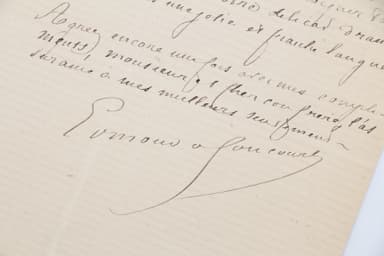 délicat dra
une jolie et franche langue
Agréez encore une fois avec mes compli-
ments, monsieur et cher confrère, l'as
surance de mes meilleurs sentiments
Edmond de Goncourt